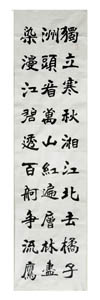 獨立寒秋湘江北去橘子
洲頭看萬山紅遍層林盡
染漫江碧透百舸争流鷹